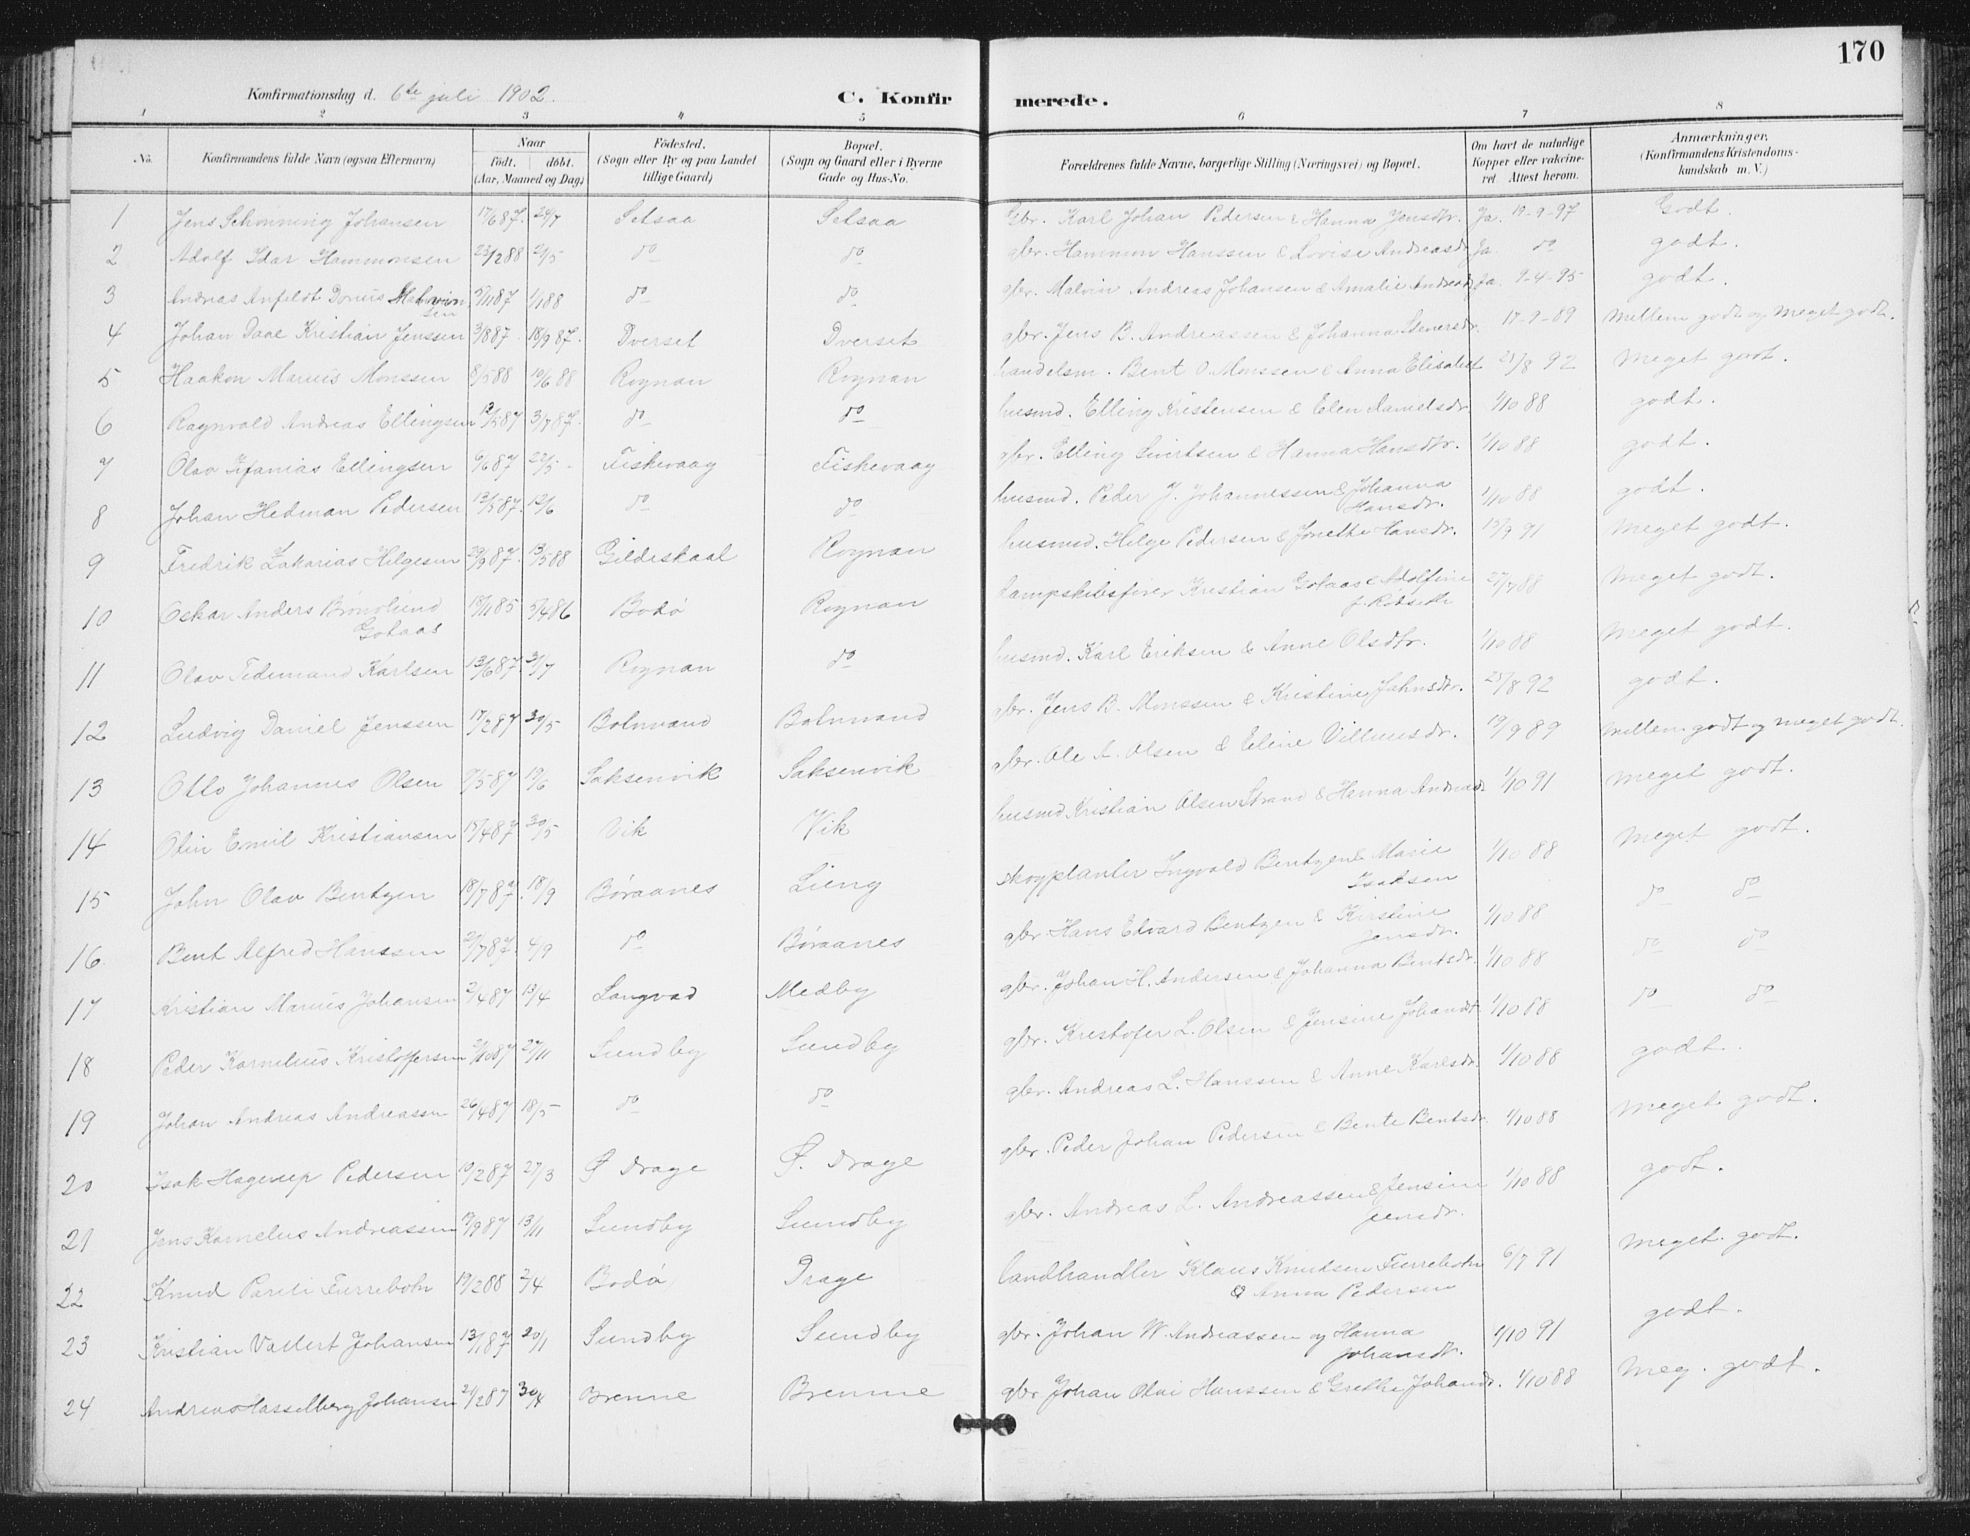 170
Konfirmationsdag d. 6te juli 1902.
C. Konfirmerede.
1 2 3 4 5 6 7 8
No. Konfirmandens fulde Navn (ogsaa Efternavn) Naar født. døbt. (Aar, Maaned og Dag) Fødested. (Sogn eller By og paa Landet tillige Gaard) Bopæl. (Sogn og Gaard eller i Byerne Gade og Hus-No. Forældrenes fulde Navne, borgerlige Stilling (Næringsvei) og Bopæl. Om havt de naturlige Kopper eller vakcineret. Attest herom. Anmærkninger. (Konfirmandens Kristendomskundskab m. V.)
1 Jens Schønning Johansen 17/6 87. 24/7 Setsaa Setsaa Gbr. Karl Johan Pedersen & Hanna Jensdtr. Ja. 19-9-97 Godt.
2 Adolf Idar Hammonsen 23/2 88 21/5 do do gbr. Hammon Hanssen & Lovise Andreasd. Ja. do godt.
3 Andreas Anfeldt Dorius Malvinsen 1/1 88 do do gbr. Malvin Andreas Johansen & Amalie Andreasd. Ja. 9-4-95 godt.
4 Johan Daae Kristian Jenssen 3/8 87. 18/9 87. Dverset Dverset gbr. Jens B. Andreassen & Johanna Stenersdr. 17-9-89 Mellem godt og meget godt.
5 Haakon Marius Monssen 8/5 88 10/6 88 Rognan Rognan handelsm. Bent O. Monssen & Anna Elisabet 21/8 92 Meget godt.
6 Ragnvald Andreas Ellingsen 12/5 87 3/7 87. do do husmd. Elling Kristensen & Elen Danielsdr. 1/10 88 godt.
7 Olav Tifanias Ellingsen 6/6 87 22/5 Fiskevaag Fiskevaag gbr. Elling Sivertsen & Hanna Hansdtr. 1/10 88 godt.
8 Johan Hedman Pedersen 13/5 87. 12/6 do do husmd. Peder J. Johannessen & Johanna Hansdr. 1/10 88 godt.
9 Fredrik Zakarias Helgesen 29/9 87. 13/5 88 Gildeskaal Rognan husmd. Helge Pedersen & Jonette Hansdr. 15/9 91 Meget godt.
10 Oskar Anders Brønslund Gotaas 18/11 85 5/4 86 Bodø Rognan dampskibsfører Kristian Gotaas & Adolfine f. Rødseth 27/7 88 Meget godt.
11 Olav Tidemand Karlsen 13/6 87. 31/7 Rognan do husmd. Karl Eriksen & Anne Olsdtr. 1/10 88 Meget godt.
12 Ludvig Daniel Jenssen 17/2 87 30/5 Botnvand Botnvand gbr. Jens B. Monssen & Kristine Jahnsdr. 25/8 92 godt.
13 Otto Johannes Olsen 9/5 87 19/6 Saksenvik Saksenvik gbr. Ole A. Olsen & Eline Villumsdr. 19/9 89 Mellem godt og meget godt.
14 Odin Emil Kristiansen 15/4 87. 30/5 Vik Vik husmd. Kristian Olsen Strand & Hanna Andreasd. 1/10 91 Meget godt.
15 John Olav Bentzen 18/7 87. 18/9 Børaanes Lieng skogplanter Ingvald Bentzen & Marie Isaksen 1/10 88 Meget godt.
16. Bent Alfred Hanssen 21/7 87. 4/9 do Børaanes gbr. Hans Edvard Bentzen & Kirstine Jensdr. 1/10 88 do do
17 Kristian Marius Johansen 2/4 87 13/4 Langvad Medby gbr. Johan H. Andersen & Johanna Bentsdr. 1/10 88 do do
18 Peder Kornelius Kristoffersen 2/10 87 27/11 Sundby Sundby gbr. Krestofer L. Olsen & Jensine Johansdr. 1/10 88 do do
19 Johan Andreas Andreassen 26/4 87 18/5 do do gbr. Andreas L. Hanssen & Anne Karlsdr. 1/10 88 godt.
20 Isak Hagerup Pedersen 19/2 87 27/3 Ø Drage Ø. Drage gbr. Peder Johan Pedersen & Bente Bentsdr. 1/10 88 Meget godt.
21 Jens Kornelius Andreassen 19/9 87 13/11 Sundby Sundby gbr. Andreas L. Andreassen & Jensine Jensdr. 1/10 88 godt.
22 Knud Pareli Furrebotn 19/2 88 2/4 Bodø Drage landhandler Klaus Knudsen Furrebotn & Anna Pedersen 6/7 91 Meget godt.
23 Kristian Vallert Johansen 13/1 87 20/1 Sundby Sundby gbr. Johan W. Andreassen og Hanna Johansdr. 1/10 91 godt.
24 Andreas Hasselberg Johansen 21/2 87 30/4 Brenne Brenne gbr. Johan Olai Hanssen & Grethe Johansdr. 1/10 88 Meg. godt.